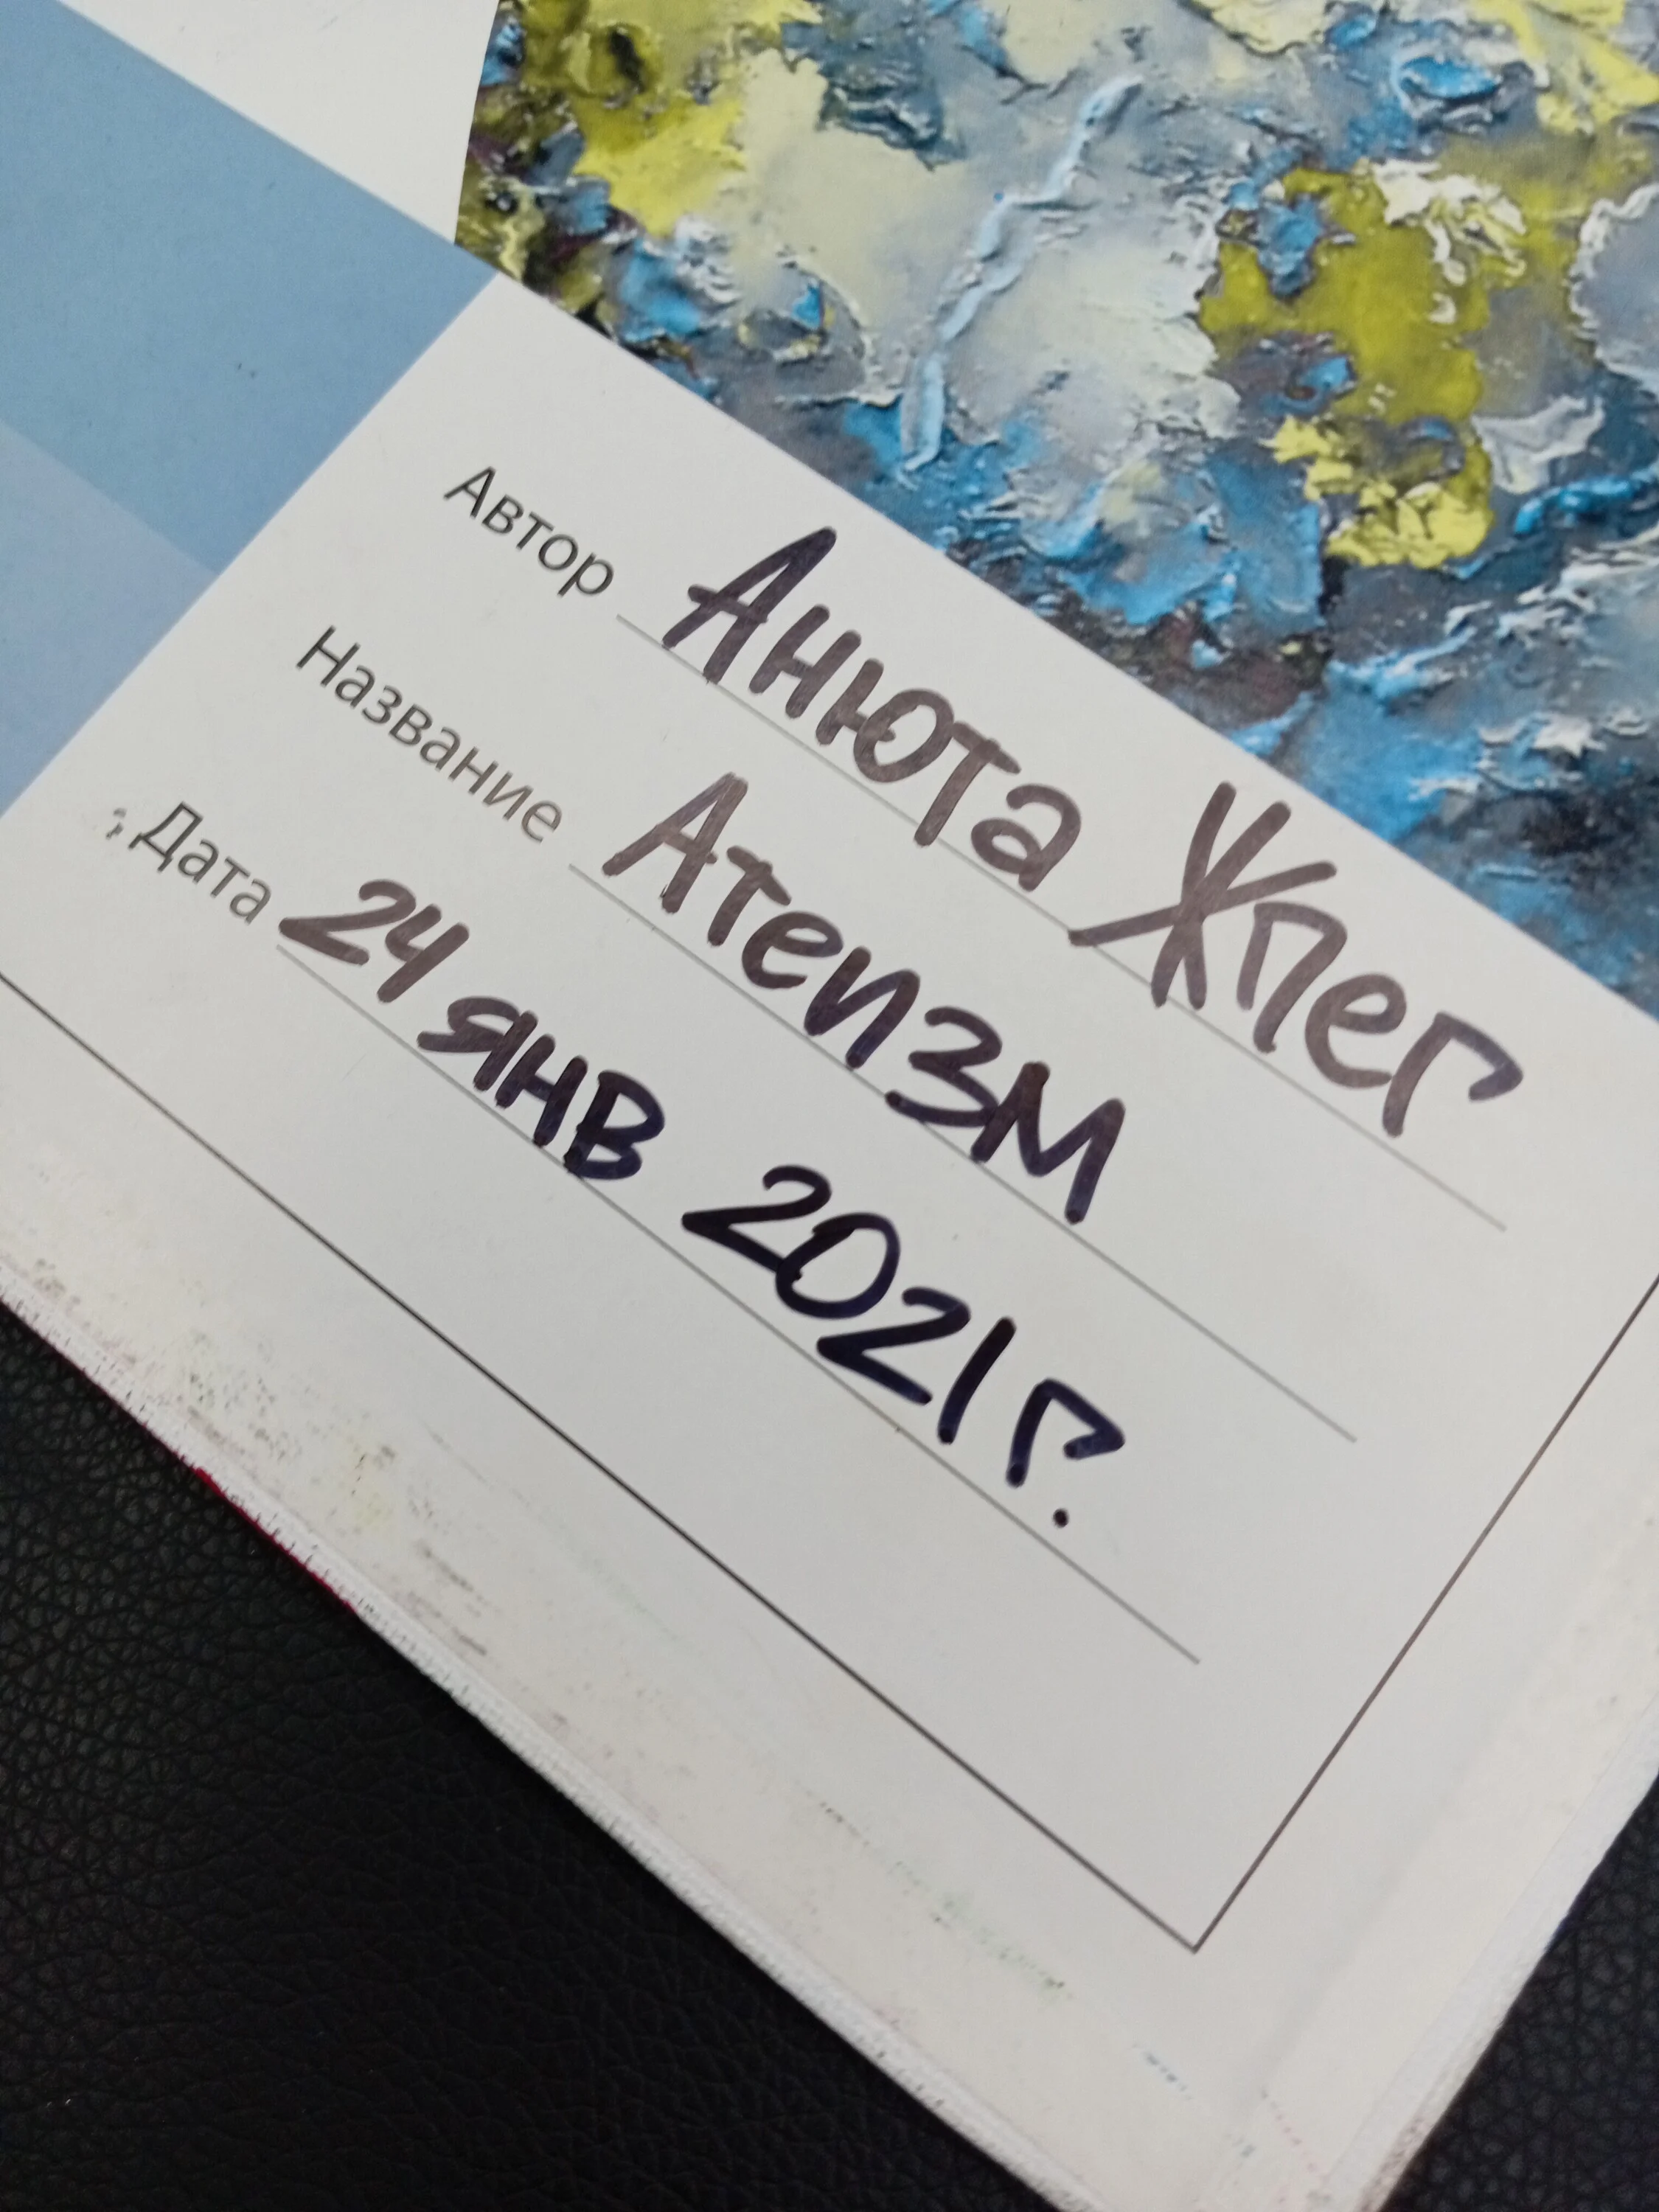 Автор Анюта Жпег
Название Атеизм
Дата 24 янв 2021 г.